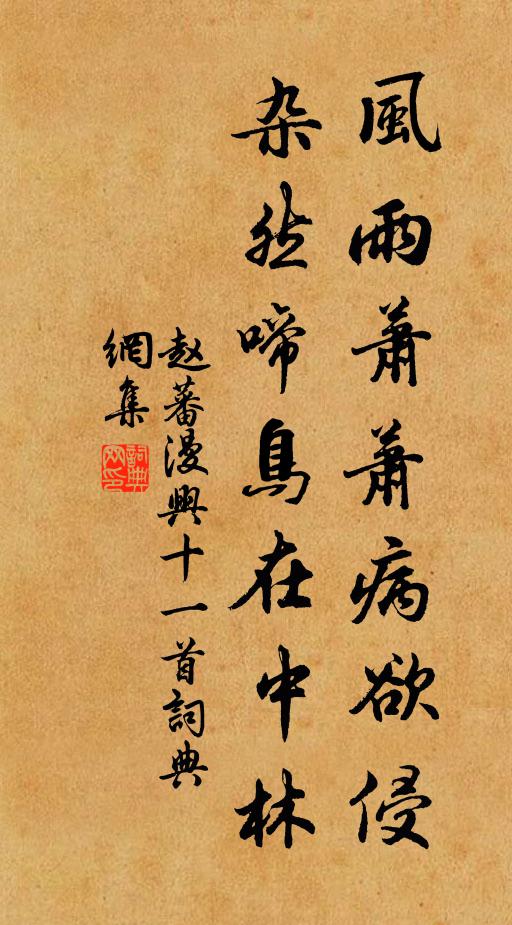 風雨蕭蕭病欲侵
杂然啼鳥在中林
赵蕃漫興十一首詞典
網集
詞典網印